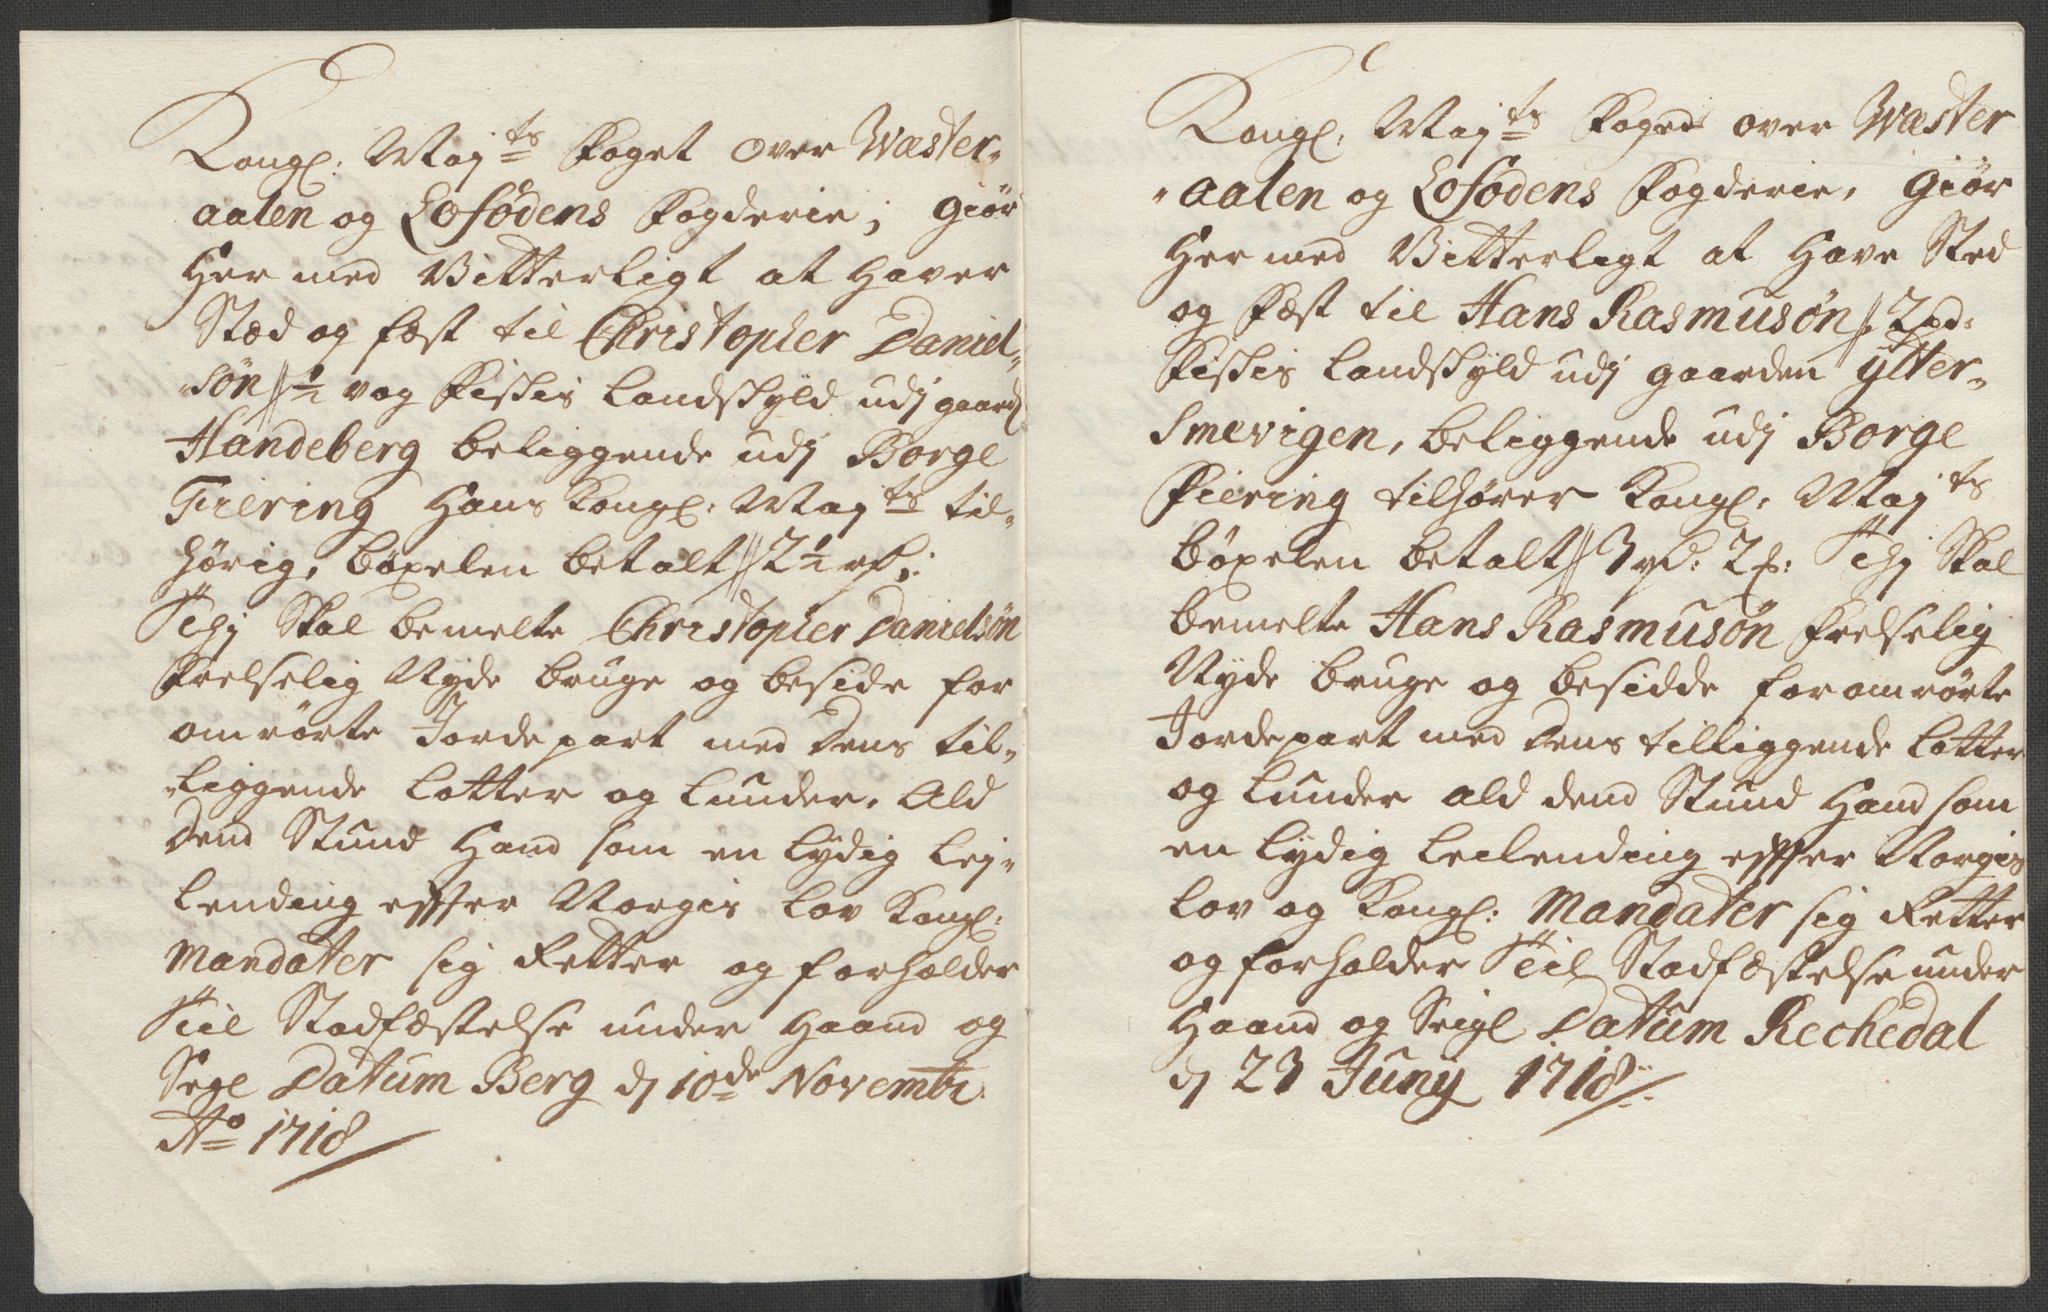 Kongl: Maj:ts Foget over Wester-
aalen og Lofodens Fogderie; giör
Her med Vitterligt at Haver
Sted og fest til Christopher Daniel-
-sön // ½ vog Fiskis Landskyld udj gaard
Handeberg beliggende udj Borge
Fiering Hans Kongl: Maj:ts til-
hörig, böxelen betalt // 2½ rd:
Thj Skal bemelte Christopher Danielsön
Frelselig Nyde bruge og beside for
omrörte Jordepart med dens til-
-liggende Lotter og Lunder, Ald
dend Stund Hand som en lydig Lej-
lending effter Norgis Lov Kongl:
Mandater sig Retter og forholder
Til Stadfæstelse under Haand og
Segl Datum Berg dj 10de Novembr:
Ao 1718
Kongl: Maj:ts Foged over Wester
-aalen og Lofodens Fogderie, giör
Her med Vitterligt at Have Sted
og Fæst til Hans Rasmusön // 2 pd:
Fiskis Landskyld udj gaarden Ytter-
Smevigen, beliggende udj Borge
Fiering tilhörer Kongl: Maj:ts
böxelen betalt // 3 rd: 2 ß: Thj Skal
bemelte Hans Rasmusön Frelselig
Nyde bruge og besidde foromrörte
Jordepart med dens tilliggende Lotter
og Lunder ald dend Stund Hand som
en lydig Leilending effter Norgis
Lov og Kongl: Mandater sig Retter
og forholder Til Stadfæstelse under
Haand og Seigl Datum Rechedal
dj 23 Juny 1718